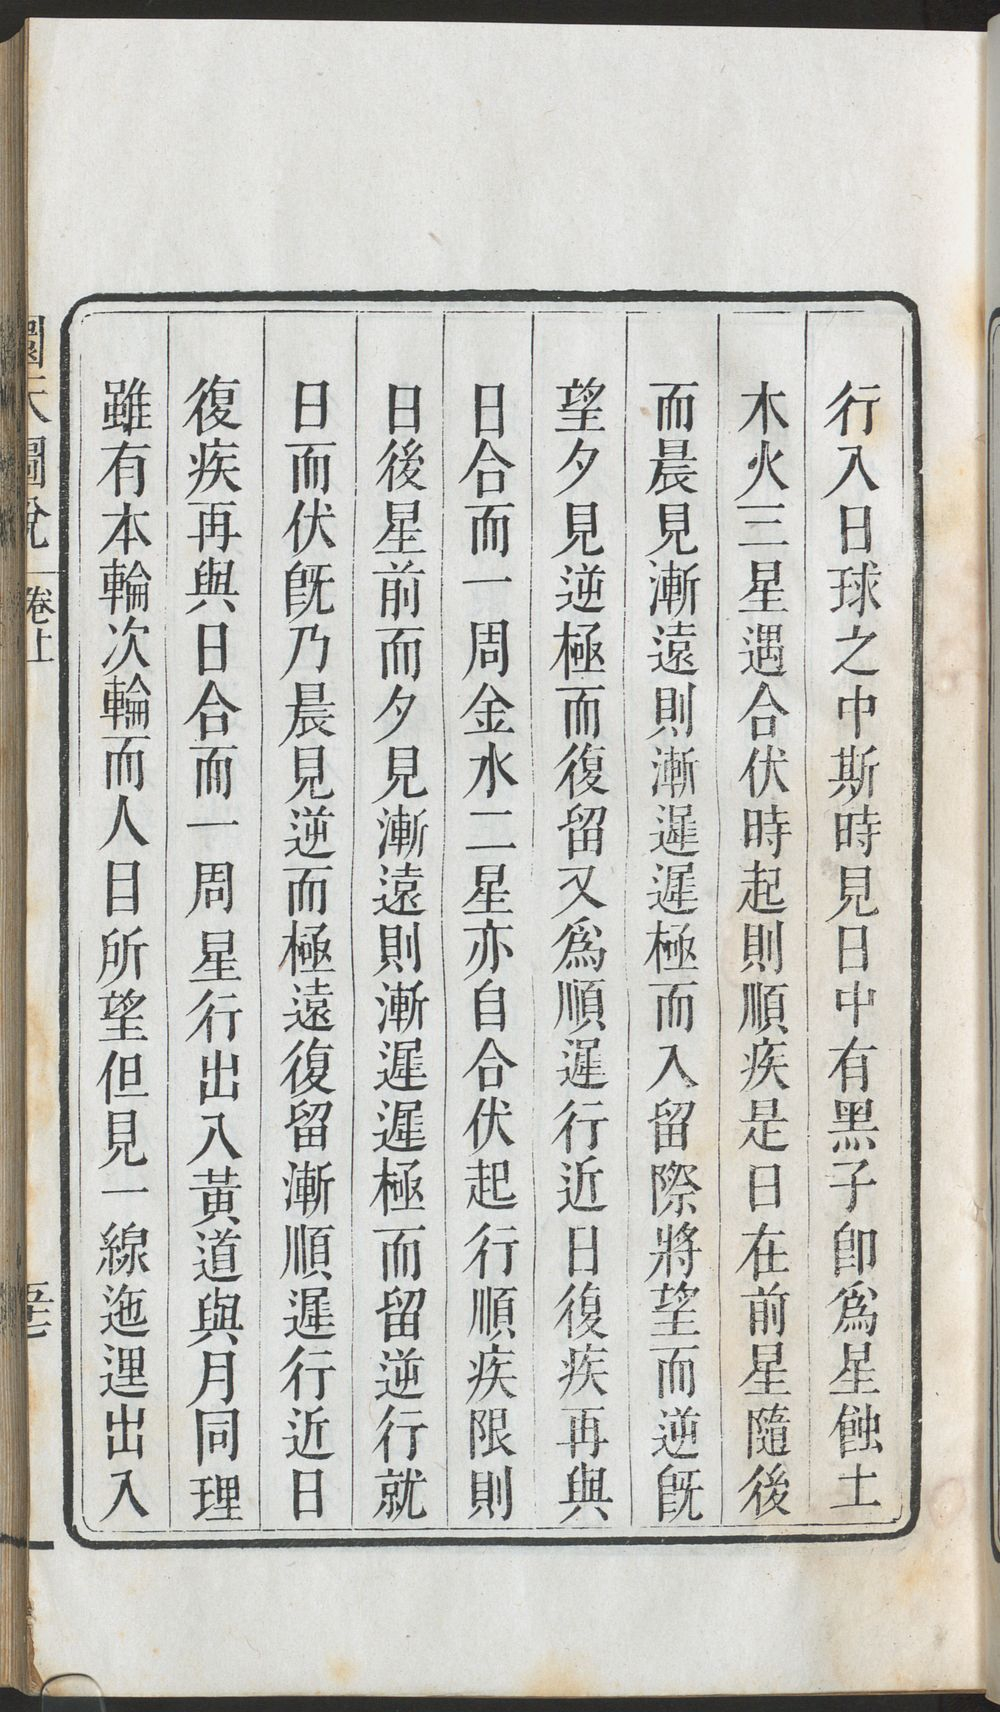 行入日球之中斯時見日中有黑子卽爲星蝕土
木火三星遇合伏時起則順疾是日在前星隨後
而晨見漸遠則漸遲遲極而入留際將望而逆旣
望夕見逆極而復留又爲順遲行近日復疾再與
日合而一周金水二星亦自合伏起行順疾限則
日後星前而夕見漸遠則漸遲遲極而留逆行就
日而伏旣乃晨見逆而極遠復留漸順遲行近日
復疾再與日合而一周星行出入黃道與月同理
雖有本輪次輪而人目所望但見一線迤邐出入
圜天圖說
卷上